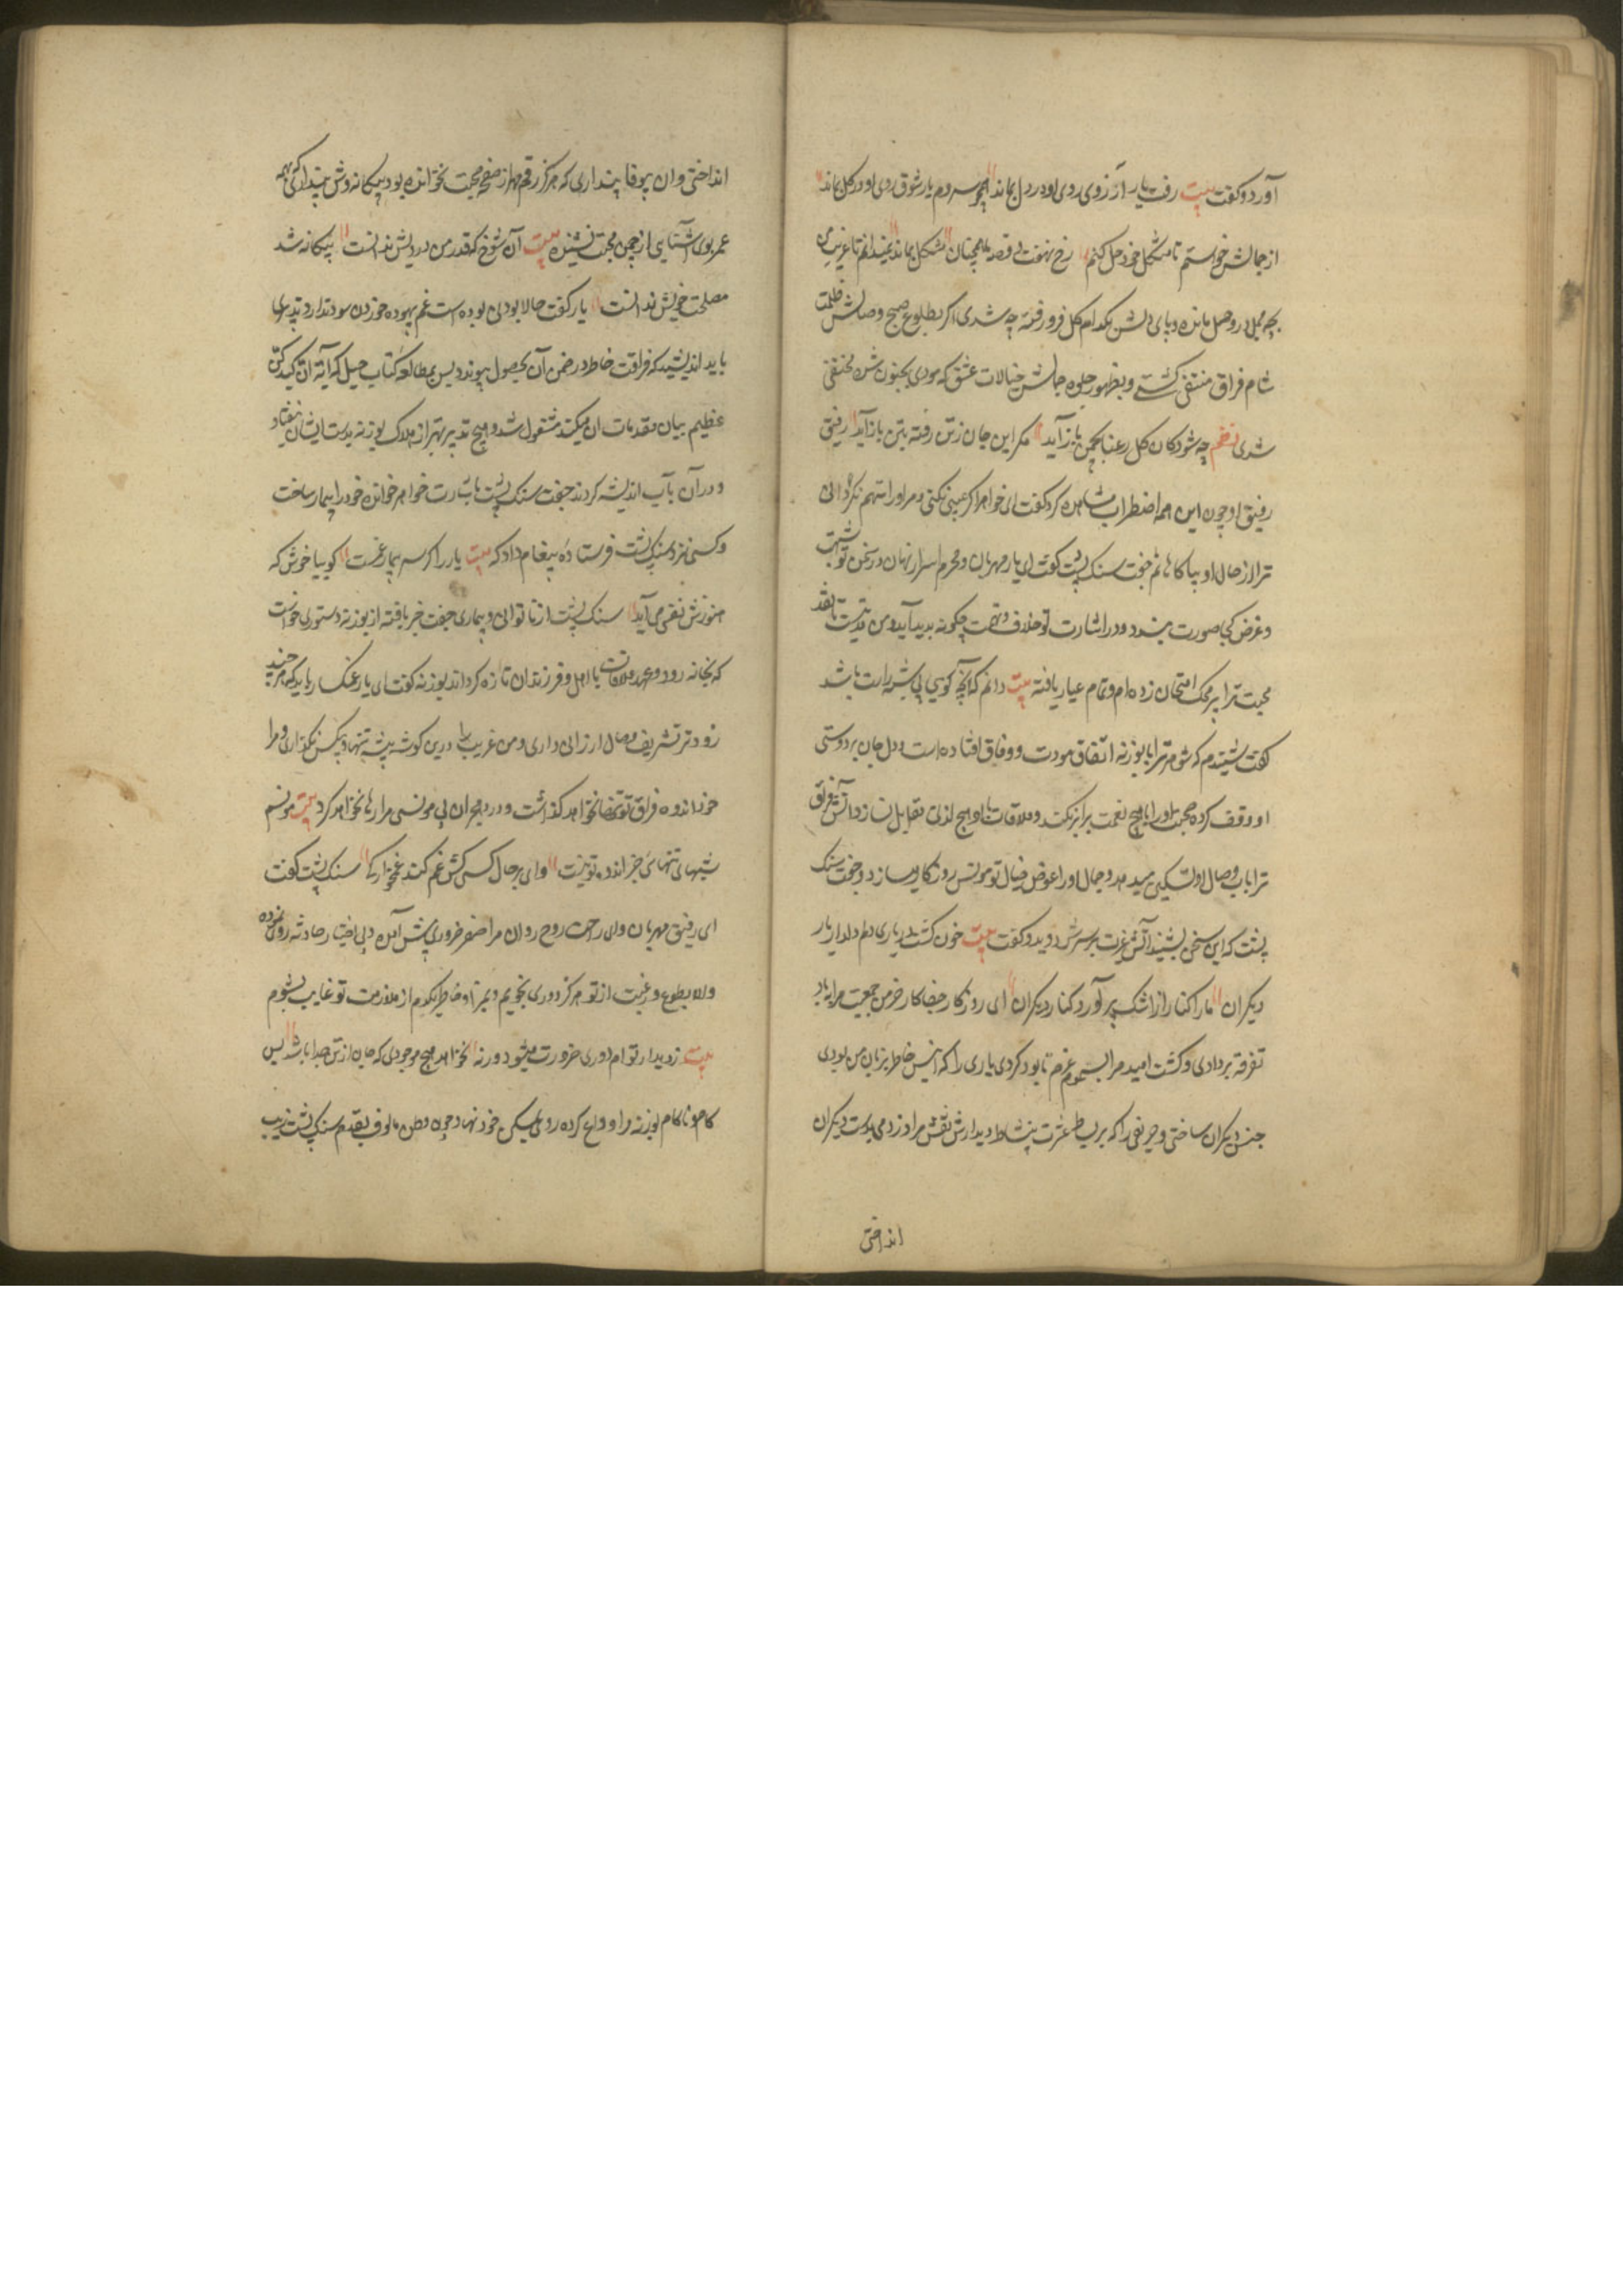 آورد و کفت بیت رفت یار آرزوی روی او در دل بماند همچو سروم یار شوق روی او در کل بماند
از جمالش خواستم تا مشکل خود حل کنم رخ نهفت و قصه ما همچنان مشکل بماند نمیدانم تا غریب من
بچه محمل در وحل مانده و پای دلش بکدام کل فرو رفته چه شدی اکر بطلوع صبح وصالش ظلمت
شام فراق منتفی کشتی و بظهور جلوه جمالش خیالات عشق که مودی بجنون شده مختفی
شدی نظم چه شود کان کل رعنا بچمن باز آید مکر این جان ز تن رفته بتن باز آید رفیق
رفیق او چون این همه اضطراب مشاهده کرد کفت ای خواهر اکر عیبی نکنی و مرا متهم نکردانی
ترا از حال او بیاکاهانم جفت سنک پشت کفت ای یار مهربان و محرم اسرار نهان در سخن تو شبهت
و غرض کجا صورت بندد و در اشارت تو خلاف و تهمت چکونه پدید آید و من مدتیست تا نقد
محبت ترا بر محک امتحان زده‌ام و تمام عیار یافته بیت دانم که آنچه کویی بی شبهه راست باشد
کفت شنیدم که شوهر ترا با بوزنه اتفاق مودت و وفاق افتاده است و دل و جان بر دوستی
او وقف کرده صحبت او را با هیچ نعمت برابر نکند و ملاقات او با هیچ لذتی مقابل نسازد آتش فراق
ترا باب وصال او تسکین میدهد و جمال او را عوض خیال تو مونس روزکار میسازد جفت سنک
پشت که این سخن بشنید آتش غیرت بر سرش دوید و کفت بیت خون کشت در یاری دلم دلدار یار
دیکران ما را کنار از اشک پر آورد کنار دیکران ای روزکار جفاکار خرمن جمعیت مرا بباد
تفرقه بردادی و کشت امید مرا بسموم غم نابود کردی یاری را که انیس خاطر بزبان من بودی
جنس دیکران ساختی و حریفی را که بر بساط عشرت بنشاط دیدارش نقش مراد زدمی بدست دیکران
انداختی
انداختی و آن بیوفا پنداری که هرکز رقم مهر از صفحه محبت نخوانده بود بیکانه‌وش پنداری که همه
عمر بوی آشنایی از چمن محبت نشنیده بیت آن شوخ که قدر من درویش ندانست بیکانه شد
مصلحت خویش ندانست یار کفت حالا بودنی بوده است غم بیهوده خوردن سود ندارد تدبیری
باید اندیشید که فراغت خاطر در ضمن آن بحصول پیوندد پس بمطالعه کتاب حیل که آیه ان کیدکن
عظیم بیان مقدمات آن میکند مشغول شد و هیچ تدبیر بهتر از هلاک بوزنه بدست ایشان نیفتاد
و در آن باب اندیشه کردند جفت سنک پشت باشارت خواهر خوانده خود را بیمار ساخت
و کسی نزد سنک پشت فرستاده پیغام داد که بیت یار را کر سر بیمار غمست کو بیا خوش که
هنوزش نفسی می‌آید سنک پشت از ناتوانی و بیماری جفت خبر یافته از بوزنه دستوری خواست
که بخانه رود و عهد ملاقات با اهل و فرزندان تازه کرداند بوزنه کفت ای یار غمکسار باید که هرچند
زودتر تشریف وصال ارزانی داری و من غریب را درین کوشه بیشه تنها و بیکس نکذاری و مرا
خود اندوه فراق تو تنها نخواهد کذاشت و درد هجران بی مونسی مرا رها نخواهد کرد بیت مونسم
شبهای تنهایی جز اندوه تو نیست وای بر حال کسی کش غم کند غمخوارکی سنک پشت کفت
ای رفیق مهربان و ای راحت روح روان مرا سفر ضروری پیش آمده و بی اختیار حادثه روی نموده
و الا بطوع و رغبت از تو هرکز دوری نجویم و بمراد خاطر یکدم از ملازمت تو غایب نشوم
بیت ز دیدار توام دوری ضرورت میشود ورنه نخواهد هیچ موجودی که جان از تن جدا باشد پس
کام و ناکام بوزنه را وداع کرده روی بمسکن خود نهاد چون وطن مالوف بقدم سنک پشت زیب